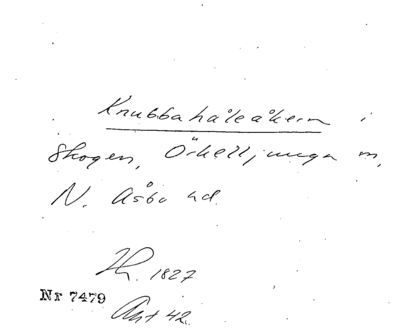 Knubbahåleåkern i
Skogen, Örkelljunga m,
N. Åsbo hd.
1827
Nr 7479
Ant 42.